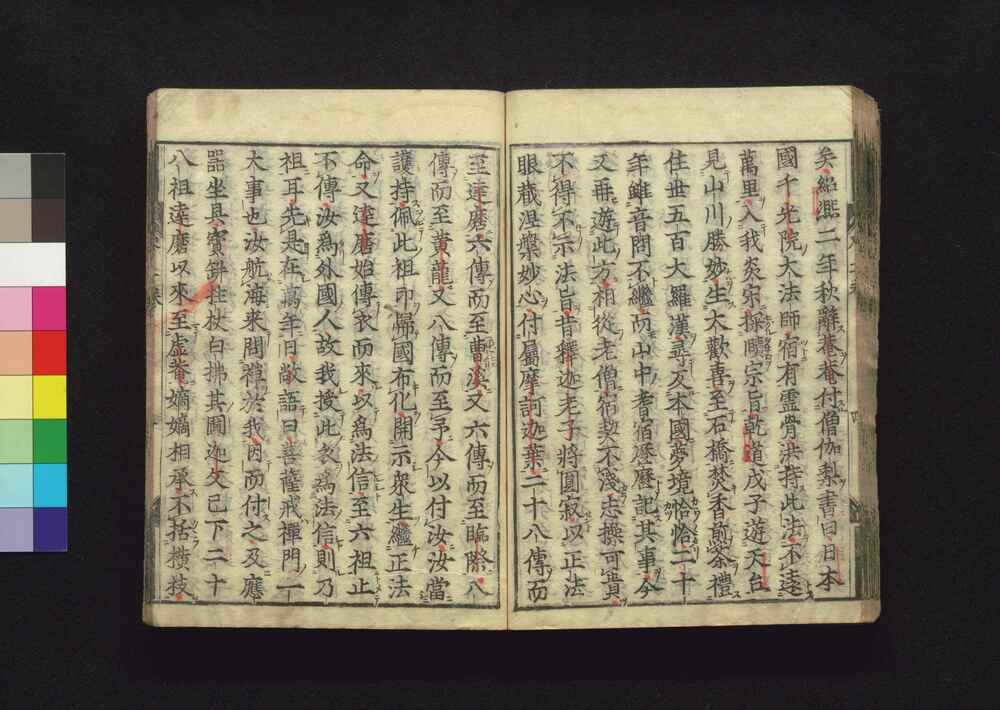 矣紹熙二年秋辭菴菴付僧伽梨書曰日本
國千光院大法師宿有靈骨洪持此法不遠
萬里入我炎宋探賾宗旨乾道戊子遊天台
見山川勝妙生大歡喜至石橋焚香煎茶禮
住世五百大羅漢尋反本國夢境恰恰二十
年雖音問不繼而山中耆宿歷歷記其事今
又再遊此方相從老僧宿契不淺志操可貴
不得不示法旨昔釋迦老子將圓寂以正法
眼藏涅槃妙心付屬摩訶迦葉二十八傳而
至達磨六傳而至曹溪又六傳而至臨際八
傳而至黃龍又八傳而至予今以付汝汝當
護持佩此祖印歸國布化開示衆生繼正法
命又達磨始傳衣而來以爲法信至六祖止
不傳汝爲外國人故我授此衣爲法信則乃
祖耳先是在萬年日敞語曰菩薩戒禪門一
大事也汝航海来問禪於我因而付之及應
器坐具寶缾拄杖白拂其圖迦文已下二十
八祖達磨以來至虛菴嫡嫡相承不括橫枝